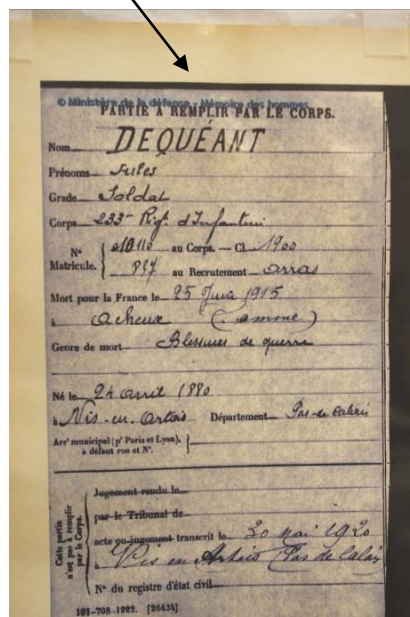 © Ministère de la défense - Mémoire des hommes
PARTIE À REMPLIR PAR LE CORPS.
Nom DEQUÉANT
Prénoms Jules
Grade Soldat
Corps 233e Régt d'Infanterie
N° Matricule. { 010110 au Corps. — Cl. 1900
837 au Recrutement Arras
Mort pour la France le 25 Juin 1915
à Acheux (Somme)
Genre de mort Blessures de guerre
Né le 24 avril 1880
à Vis-en-Artois Département Pas-de-Calais
Arrt municipal (pr Paris et Lyon), à défaut rue et N°.
Cette partie n'est pas à remplir par le Corps.
Jugement rendu le
par le Tribunal de
acte ou jugement transcrit le 30 mai 1920
à Vis en Artois (Pas de Calais
N° du registre d'état civil
101-708-1922. [26434]